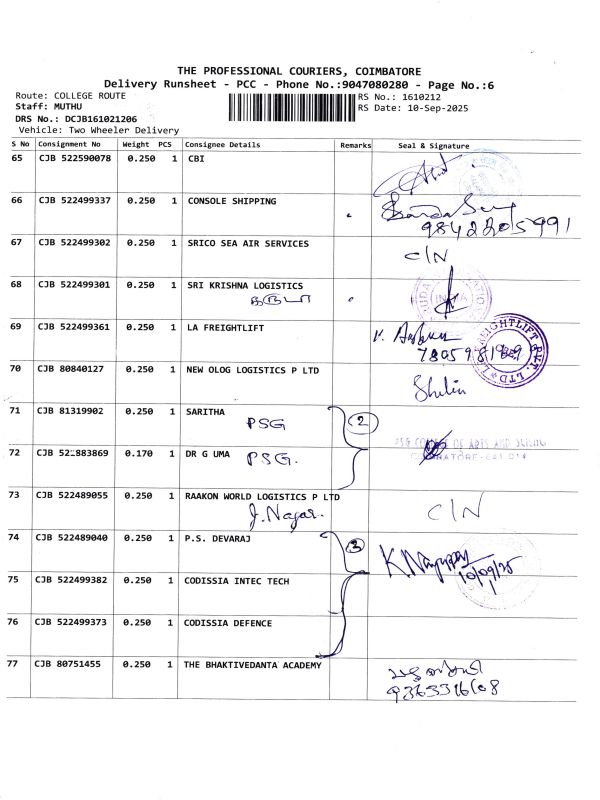 THE PROFESSIONAL COURIERS, COIMBATORE
Delivery Runsheet - PCC - Phone No.:9047080280 - Page No.:6
Route: COLLEGE ROUTE RS No.: 1610212
Staff: MUTHU RS Date: 10-Sep-2025
DRS No.: DCJB161021206
Vehicle: Two Wheeler Delivery
S No Consignment No Weight PCS Consignee Details Remarks Seal & Signature
65 CJB 522590078 0.250 1 CBI
66 CJB 522499337 0.250 1 CONSOLE SHIPPING
9842205991
67 CJB 522499302 0.250 1 SRICO SEA AIR SERVICES
C/N
68 CJB 522499301 0.250 1 SRI KRISHNA LOGISTICS
INDIA
69 CJB 522499361 0.250 1 LA FREIGHTLIFT
70 CJB 80840127 0.250 1 NEW OLOG LOGISTICS P LTD
71 CJB 81319902 0.250 1 SARITHA
PSG 2
PSG COLLEGE OF ARTS AND SCIENCE
72 CJB 521883869 0.170 1 DR G UMA PSG.
COIMBATORE-641 014
73 CJB 522489055 0.250 1 RAAKON WORLD LOGISTICS P LTD
J. Nagar. C/N
74 CJB 522489040 0.250 1 P.S. DEVARAJ 3
10/09/25
75 CJB 522499382 0.250 1 CODISSIA INTEC TECH
76 CJB 522499373 0.250 1 CODISSIA DEFENCE
77 CJB 80751455 0.250 1 THE BHAKTIVEDANTA ACADEMY